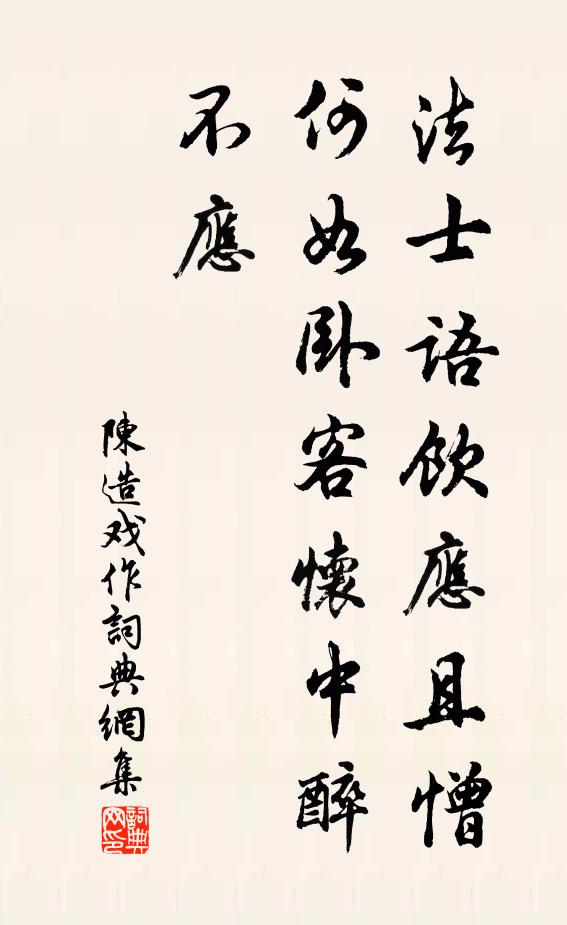 法士語飲應且憎
何如卧客懷中醉
不應
陳造戏作詞典網集
詞典网印